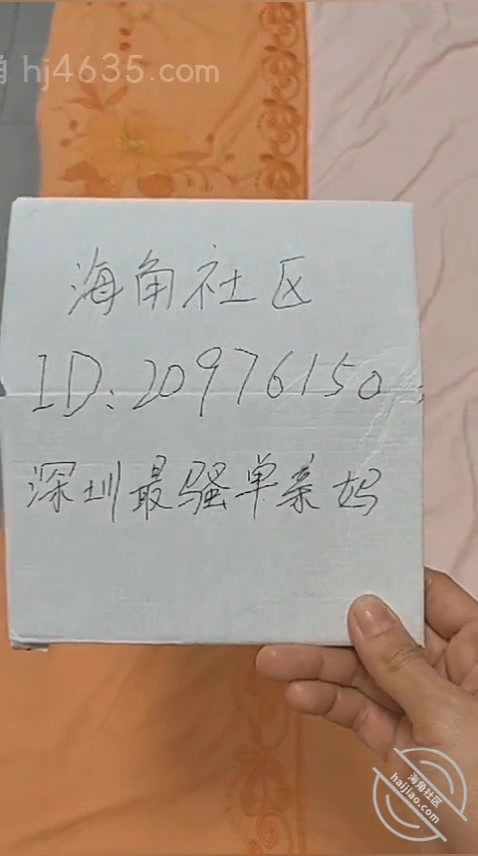 角 hj4635.com
海角社区
ID:20976150
深圳最骚单亲妈
海角社区
haijiao.com